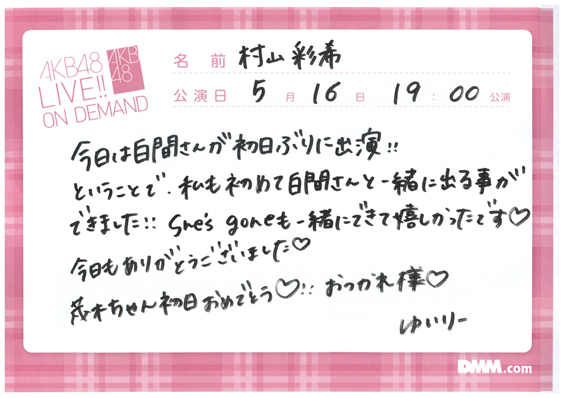 AKB48
LIVE!!
ON DEMAND
AKB
48
名前 村山彩希
公演日 5月16日 19:00公演
今日は白間さんが初日ぶりに出演!!
ということで、私も初めて白間さんと一緒に出る事が
できました!! She's goneも一緒にできて嬉しかったです♡
今日もありがとうございました♡
茂木ちゃん初日おめでとう♡!! おつかれ様♡
ゆいりー
DMM.com